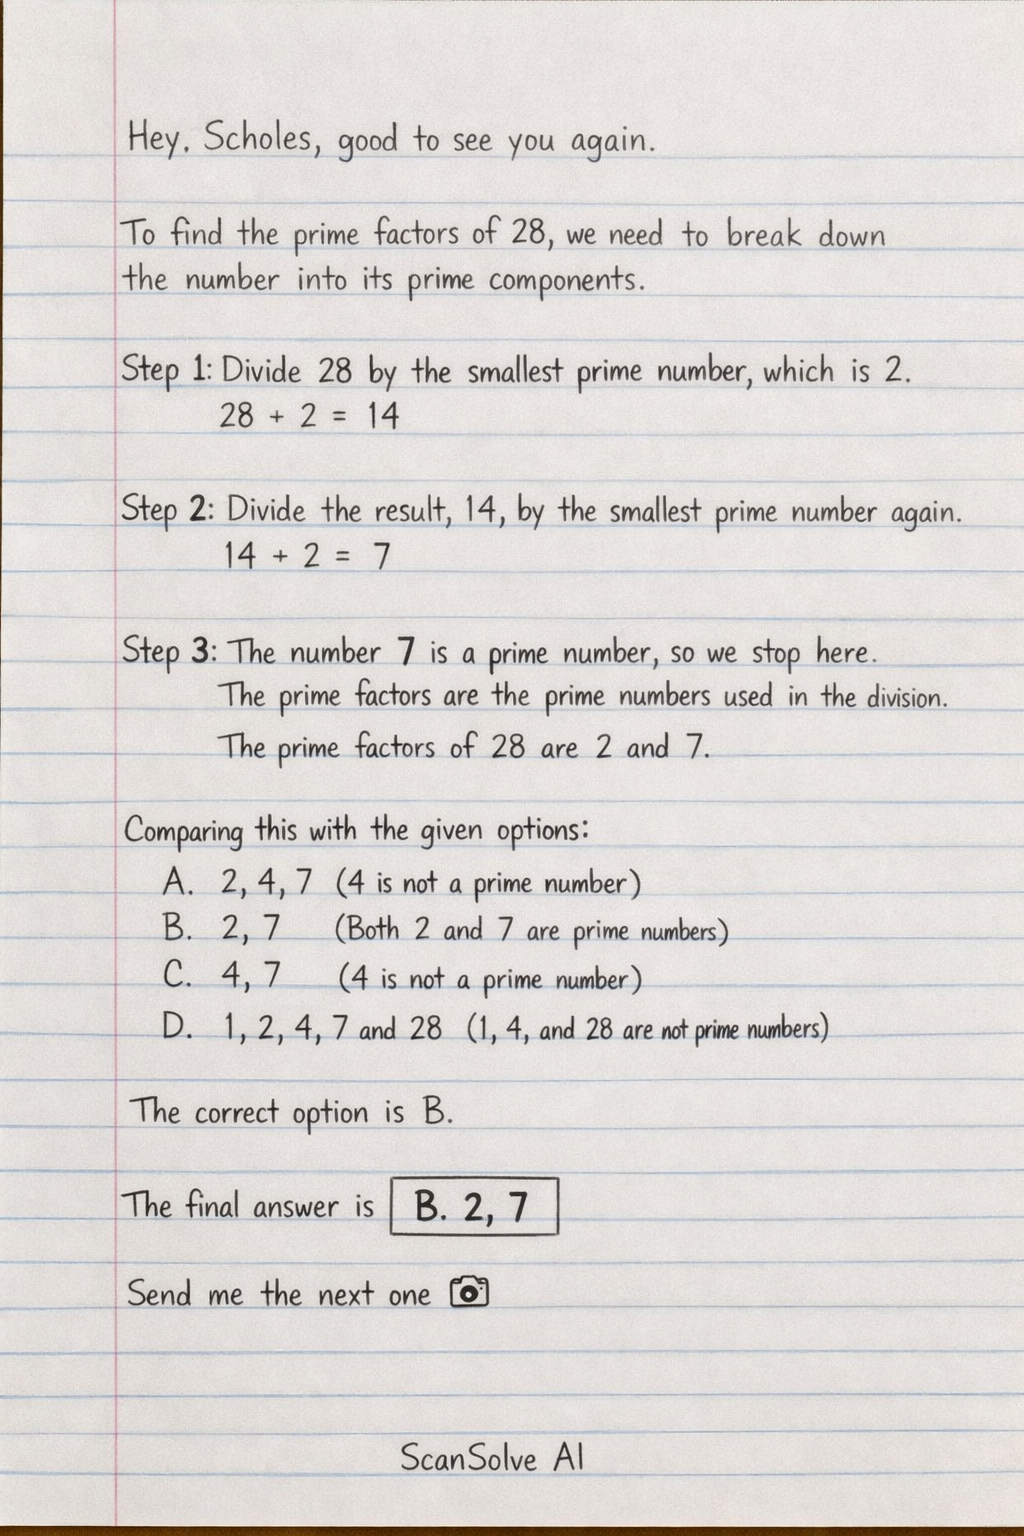 Hey. Scholes, good to see you again.
To find the prime factors of 28, we need to break down
the number into its prime components.
Step 1: Divide 28 by the smallest prime number, which is 2.
28 + 2 = 14
Step 2: Divide the result, 14, by the smallest prime number again.
14 + 2 = 7
Step 3: The number 7 is a prime number, so we stop here.
The prime factors are the prime numbers used in the division.
The prime factors of 28 are 2 and 7.
Comparing this with the given options:
A. 2, 4, 7 (4 is not a prime number)
B. 2, 7 (Both 2 and 7 are prime numbers)
C. 4, 7 (4 is not a prime number)
D. 1, 2, 4, 7 and 28 (1, 4, and 28 are not prime numbers)
The correct option is B.
The final answer is B. 2, 7
Send me the next one
ScanSolve AI